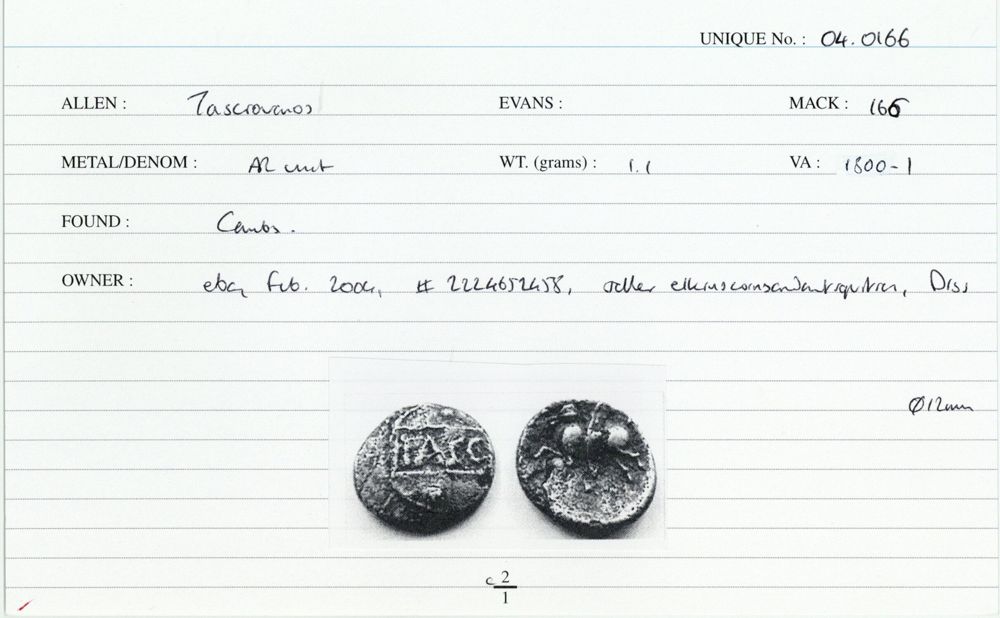 UNIQUE No. : 04.0166
ALLEN : Tasciovanos EVANS : MACK : 166
METAL/DENOM : AR unit WT. (grams) : 1.1 VA : 1800-1
FOUND : Cambs.
OWNER : ebay Feb. 2004, # 2224652458, seller elkinscoinsandantiquities, Diss
Ø12mm
TASC
c 2
1